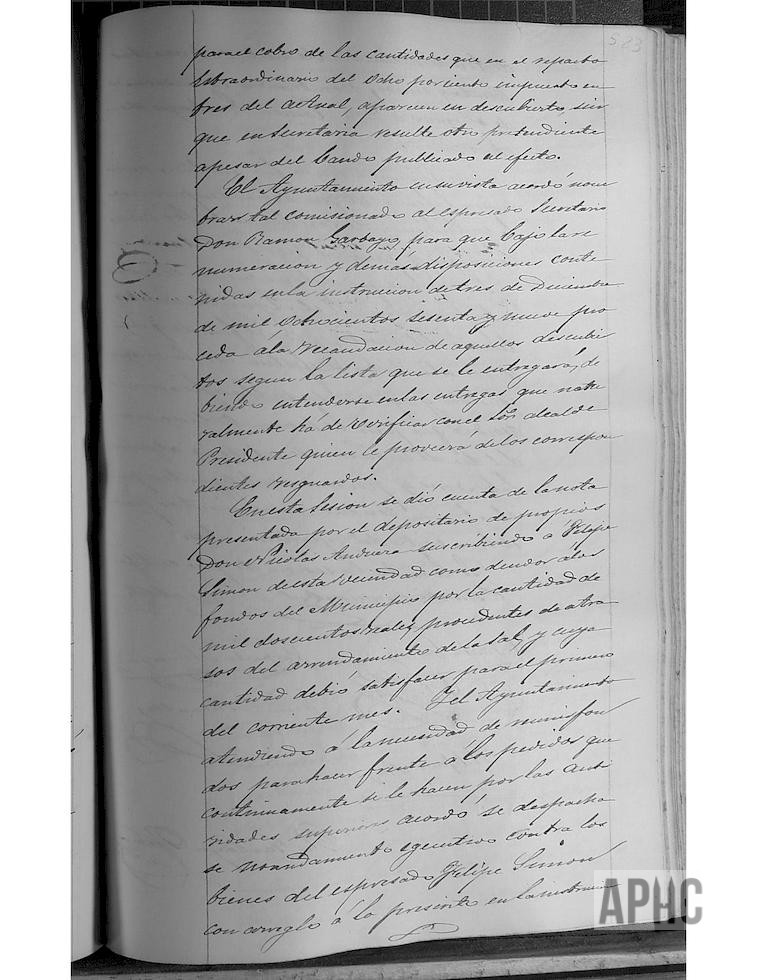 523
para el cobro de las cantidades que en el reparto
extraordinario del Ocho por ciento impuesto en
tres del actual, aparecen en descubierto sin
que en Secretaria resulte otro pretendiente
apesar del Bando publicado al efecto.
El Ayuntamiento en su vista acordó nom
brar tal comisionado al espresado Secretario
Don Ramon Garbayo para que bajo la re
numeracion y demas disposiciones conte
nidas en la instruccion de tres de Diciembre
de mil Ochocientos sesenta y nueve pro
ceda a la recaudacion de aquellos descubier
tos segun la lista que se le entregará, de
biendo entenderse en las entregas que natu
ralmente há de verificar con el Sor. Alcalde
Presidente quien le proveerá de los correspon
dientes resguardos.
En esta Sesion se dió cuenta de la nota
presentada por el depositario de propios
Don Nicolas suscribiendo a Felipe
Simon de esta vecindad como deudor a los
fondos del Municipio por la cantidad de
mil doscientos reales, procedentes de atra
sos del arrendamiento de la sal, y cuya
cantidad debió satisfacer para el primero
del corriente mes. Y el Ayuntamiento
atendiendo á la necesidad de reunir fon
dos para hacer frente a los pedidos que
continuamente se le hacen por las auto
ridades superiores acordó se despacha
se mandamiento egecutivo contra los
bienes del espresado Felipe Simon
con arreglo a lo prescrito en la instruccion
APHC